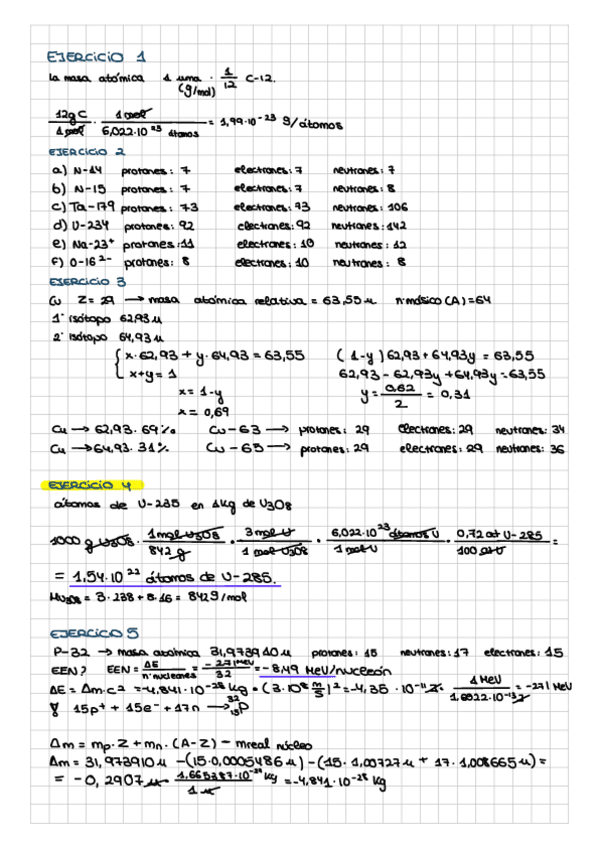 EJERCICIO 1
La masa atómica 1 uma · 1/12 C-12.
(g/mol)
12g C / 1 mol · 1 mol / 6,022·10²³ átomos = 1,99·10⁻²³ g/átomos
EJERCICIO 2
a) N-14 protones: 7 electrones: 7 neutrones: 7
b) N-15 protones: 7 electrones: 7 neutrones: 8
c) Ta-179 protones: 73 electrones: 73 neutrones: 106
d) U-234 protones: 92 electrones: 92 neutrones: 142
e) Na-23⁺ protones: 11 electrones: 10 neutrones: 12
f) O-16²⁻ protones: 8 electrones: 10 neutrones: 8
EJERCICIO 3
Cu Z= 29 → masa atómica relativa = 63,55 u nº másico (A) = 64
1º isótopo 62,93 u
2º isótopo 64,93 u
x·62,93 + y·64,93 = 63,55 (1-y) 62,93 + 64,93y = 63,55
x+y= 1 62,93 - 62,93y + 64,93y = 63,55
x= 1-y y = 0,62 / 2 = 0,31
x = 0,69
Cu → 62,93. 69% Cu-63 → protones: 29 electrones: 29 neutrones: 34
Cu → 64,93. 31% Cu-65 → protones: 29 electrones: 29 neutrones: 36
EJERCICIO 4
átomos de U-235 en 1kg de U3O8
1000 g U3O8 · 1 mol U3O8 / 842 g · 3 mol U / 1 mol U3O8 · 6,022·10²³ átomos U / 1 mol U · 0,72 at U-235 / 100 at U =
= 1,54·10²² átomos de U-235.
MU3O8 = 3·238 + 8·16 = 842 g/mol
EJERCICO 5
P-32 → masa atómica 31,973910 u protones: 15 neutrones: 17 electrones: 15
EEN? EEN = ΔE / nº nucleones = -271 MeV / 32 = -8,49 MeV/nucleón
ΔE = Δm·c² = -4,841·10⁻²⁸ kg · (3·10⁸ m/s)² = -4,35·10⁻¹¹ J · 1 MeV / 1,6022·10⁻¹³ J = -271 MeV
15p⁺ + 15e⁻ + 17n → ³²₁₅P
Δm = mp·Z + mn·(A-Z) - mreal núcleo
Δm = 31,973910 u - (15·0,0005486 u) - (15·1,00727 u + 17·1,008665 u) =
= -0,2907 u · 1,665387·10⁻²⁷ kg / 1 u = -4,841·10⁻²⁸ kg